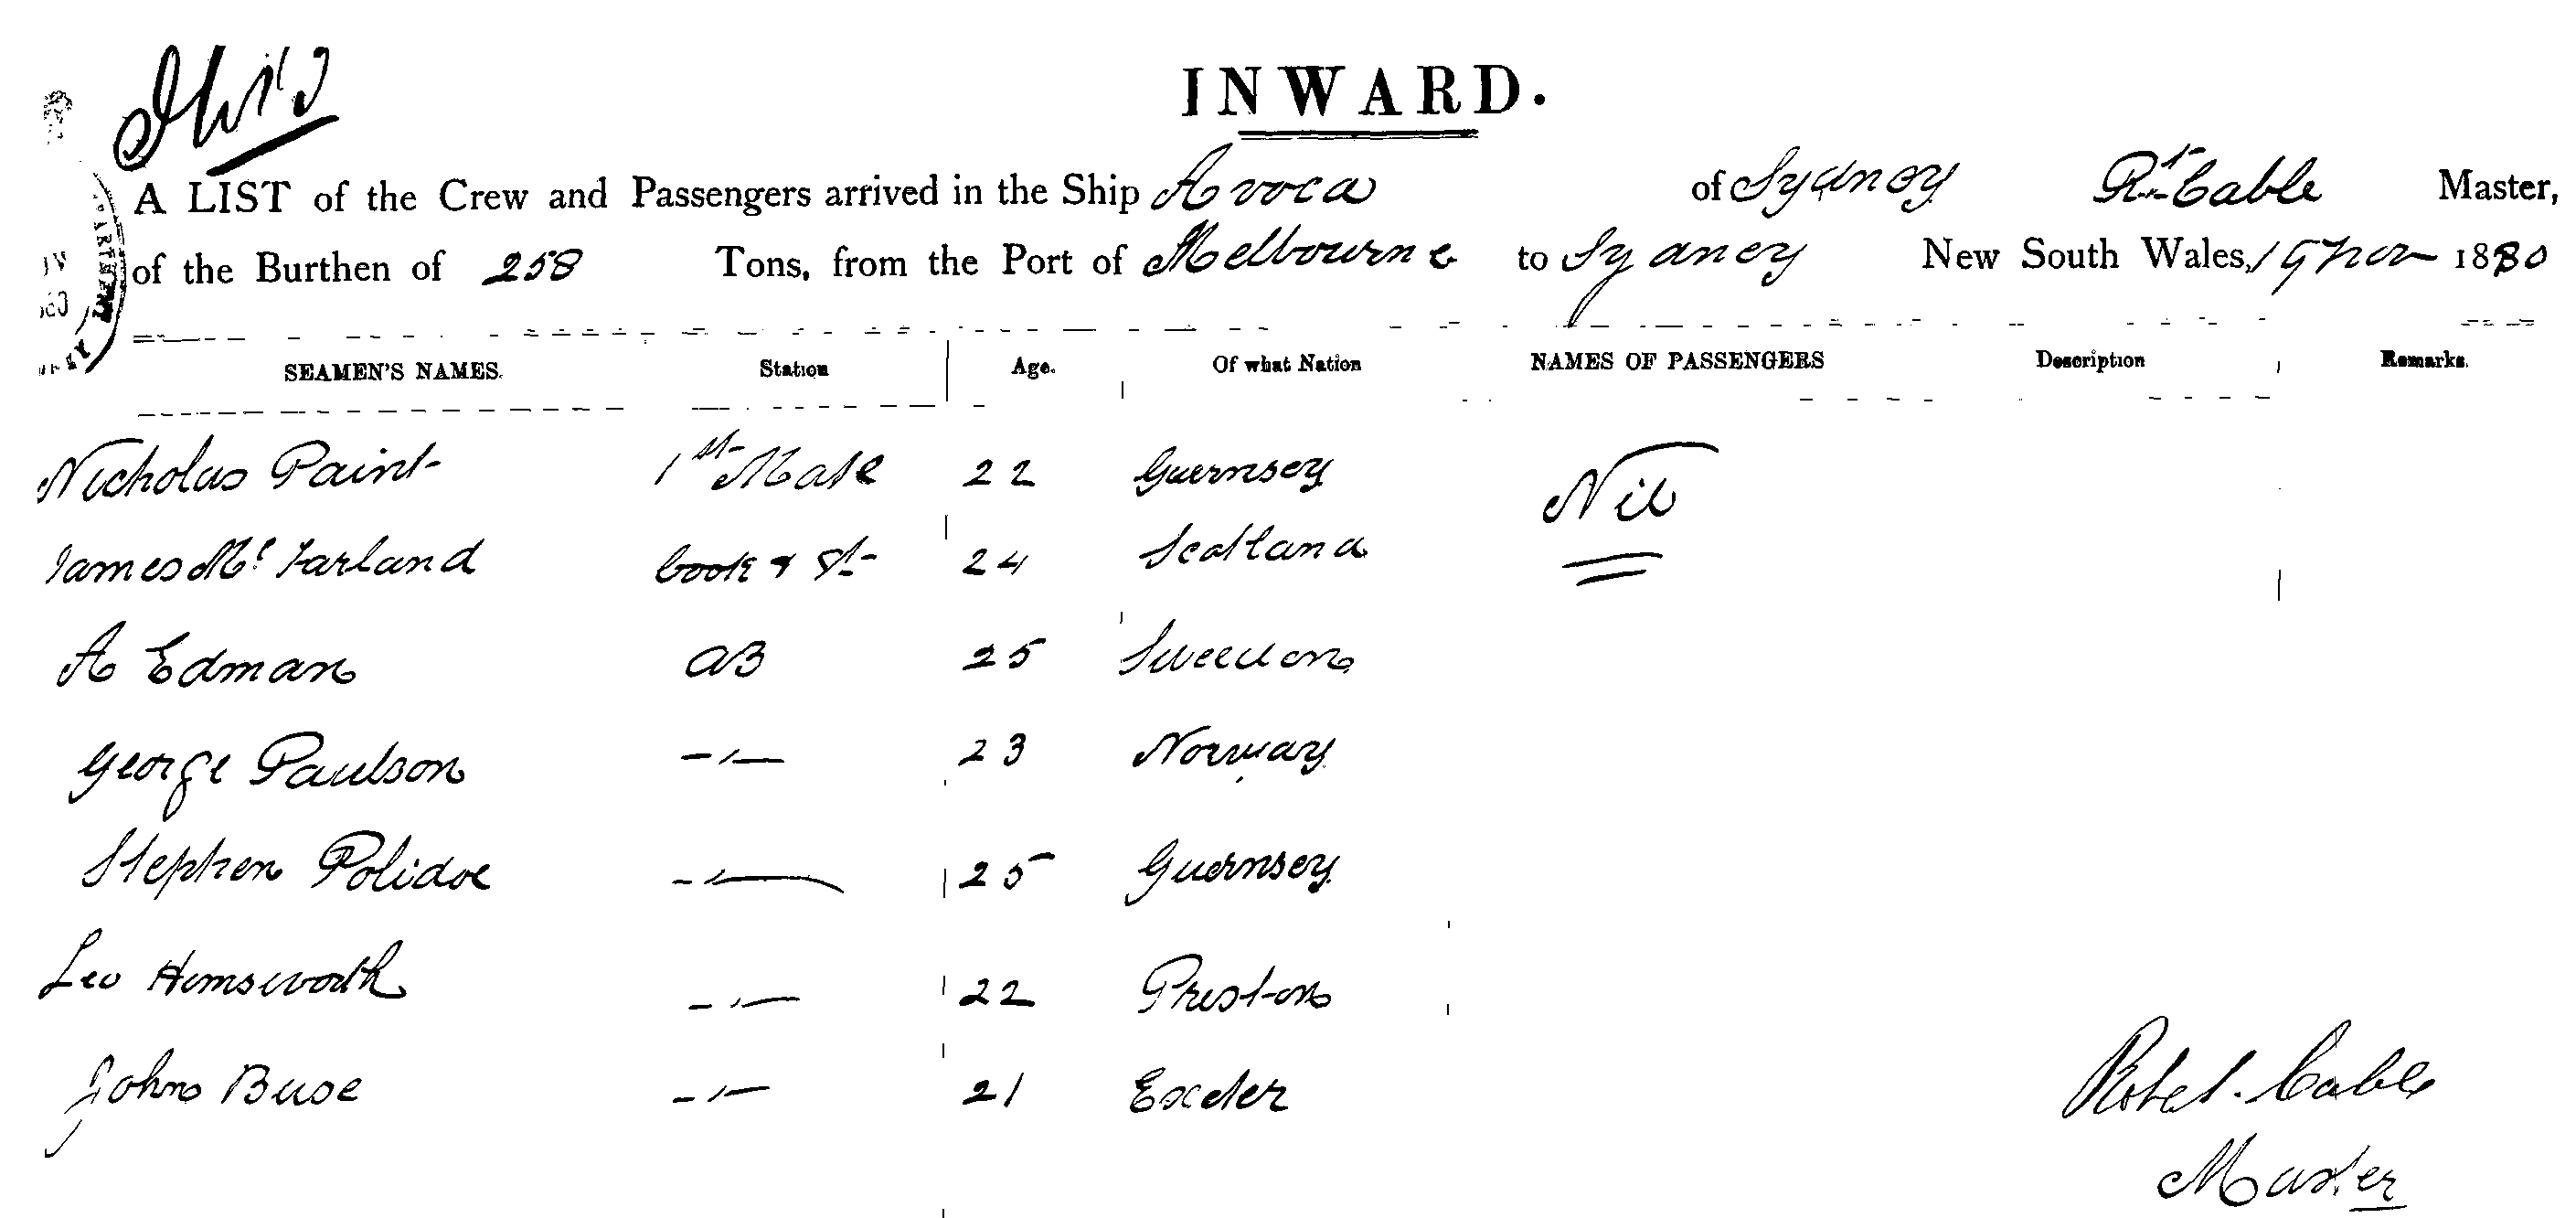 INWARD.
A LIST of the Crew and Passengers arrived in the Ship Avoca of Sydney Rt Cable Master,
of the Burthen of 258 Tons, from the Port of Melbourne to Sydney New South Wales, 19 Nov 1880
SEAMEN'S NAMES. Station Age. Of what Nation NAMES OF PASSENGERS Description Remarks.
Nicholas Paint 1st Mate 22 Guernsey Nil
James Mc Farland Cook & St 24 Scotland
A Edman AB 25 Sweeden
George Paulson -"- 23 Norway
Stephen Polidoe -"- 25 Guernsey
Leo Hemsworth -"- 22 Preston
John Buse -"- 21 Exeter
Robet. Cable
Master